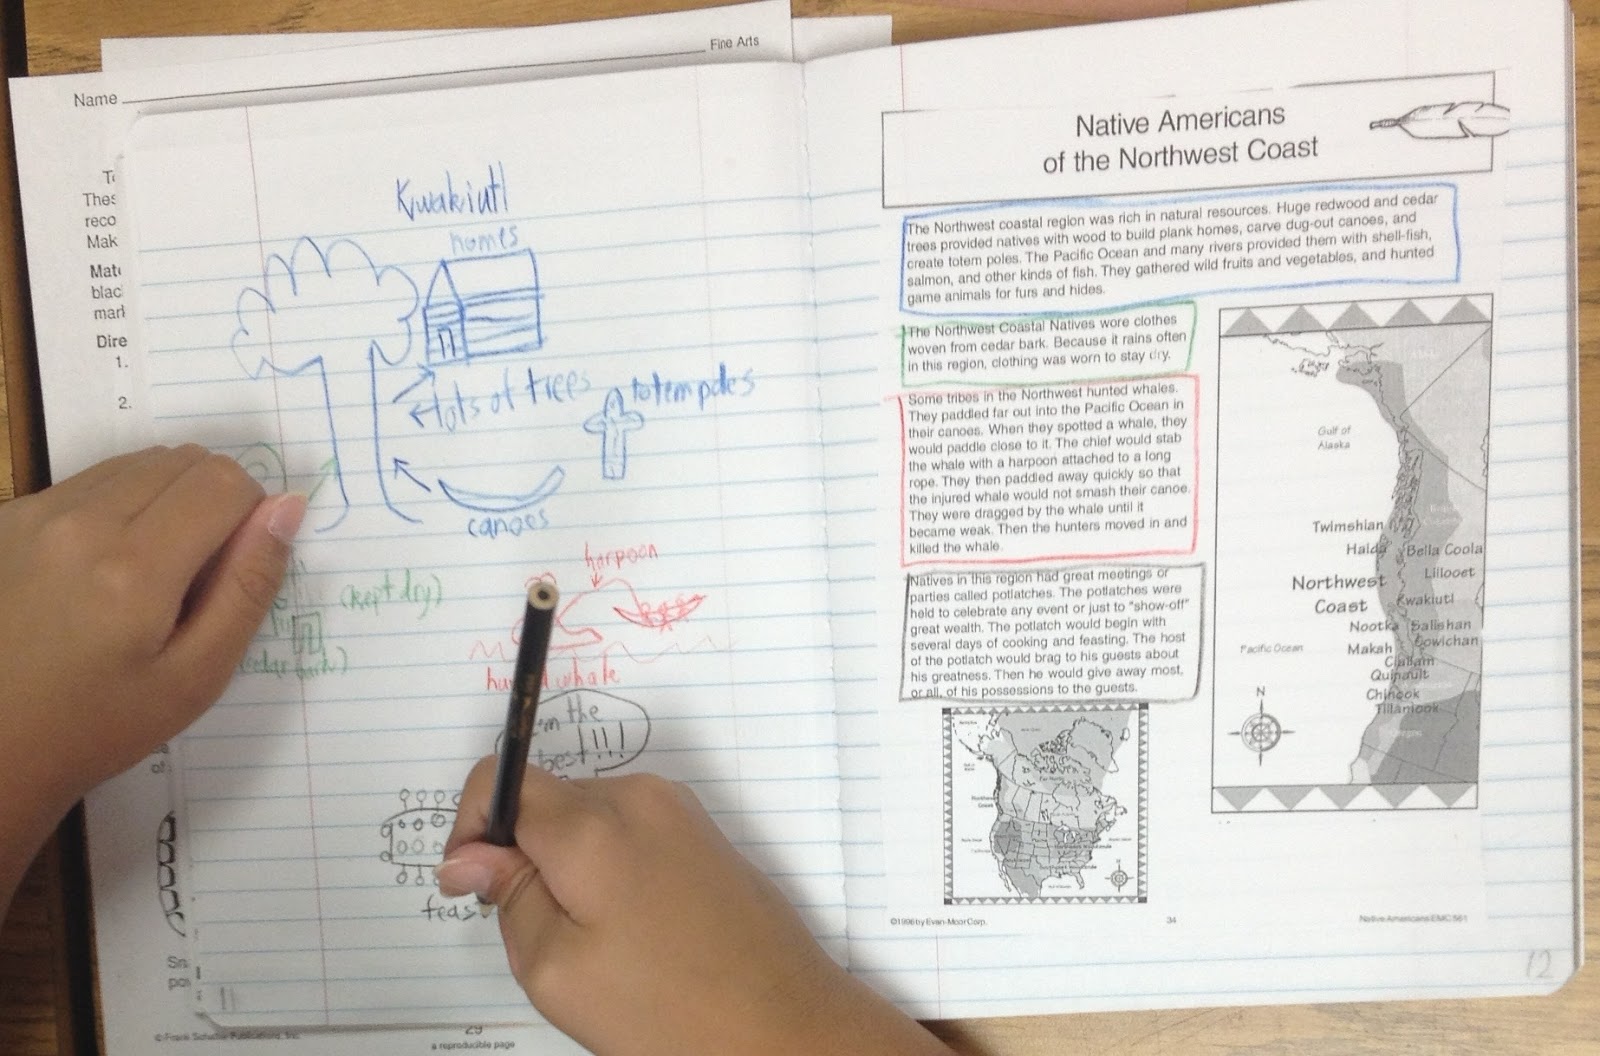 Fine Arts
Name
Thes
reco
Mak
blac
Dire
1.
2.
Kwakiutl
homes
lots of trees
totempoles
canoes
harpoon
(kept dry)
whale
the
best!!!
feas
11
29
a reproducible page
Native Americans
of the Northwest Coast
The Northwest coastal region was rich in natural resources. Huge redwood and cedar
trees provided natives with wood to build plank homes, carve dug-out canoes, and
create totem poles. The Pacific Ocean and many rivers provided them with shell-fish,
salmon, and other kinds of fish. They gathered wild fruits and vegetables, and hunted
game animals for furs and hides.
The Northwest Coastal Natives wore clothes
woven from cedar bark. Because it rains often
in this region, clothing was worn to stay dry.
Some tribes in the Northwest hunted whales.
They paddled far out into the Pacific Ocean in
their canoes. When they spotted a whale, they
would paddle close to it. The chief would stab
the whale with a harpoon attached to a long
rope. They then paddled away quickly so that
the injured whale would not smash their canoe.
They were dragged by the whale until it
became weak. Then the hunters moved in and
killed the whale.
Natives in this region had great meetings or
parties called potlatches. The potlatches were
held to celebrate any event or just to "show-off"
great wealth. The potlatch would begin with
several days of cooking and feasting. The host
of the potlatch would brag to his guests about
his greatness. Then he would give away most,
or all, of his possessions to the guests.
Gulf of
Alaska
Twimshian
Haida
Bella Coola
Lillooet
Northwest
Coast
Kwakiutl
Nootka
Salishan
Cowichan
Pacific Ocean
Makah
Clallam
Quinault
Chinook
Tillamook
N
©1996 by Evan-Moor Corp.
34
Native Americans EMC 561
12